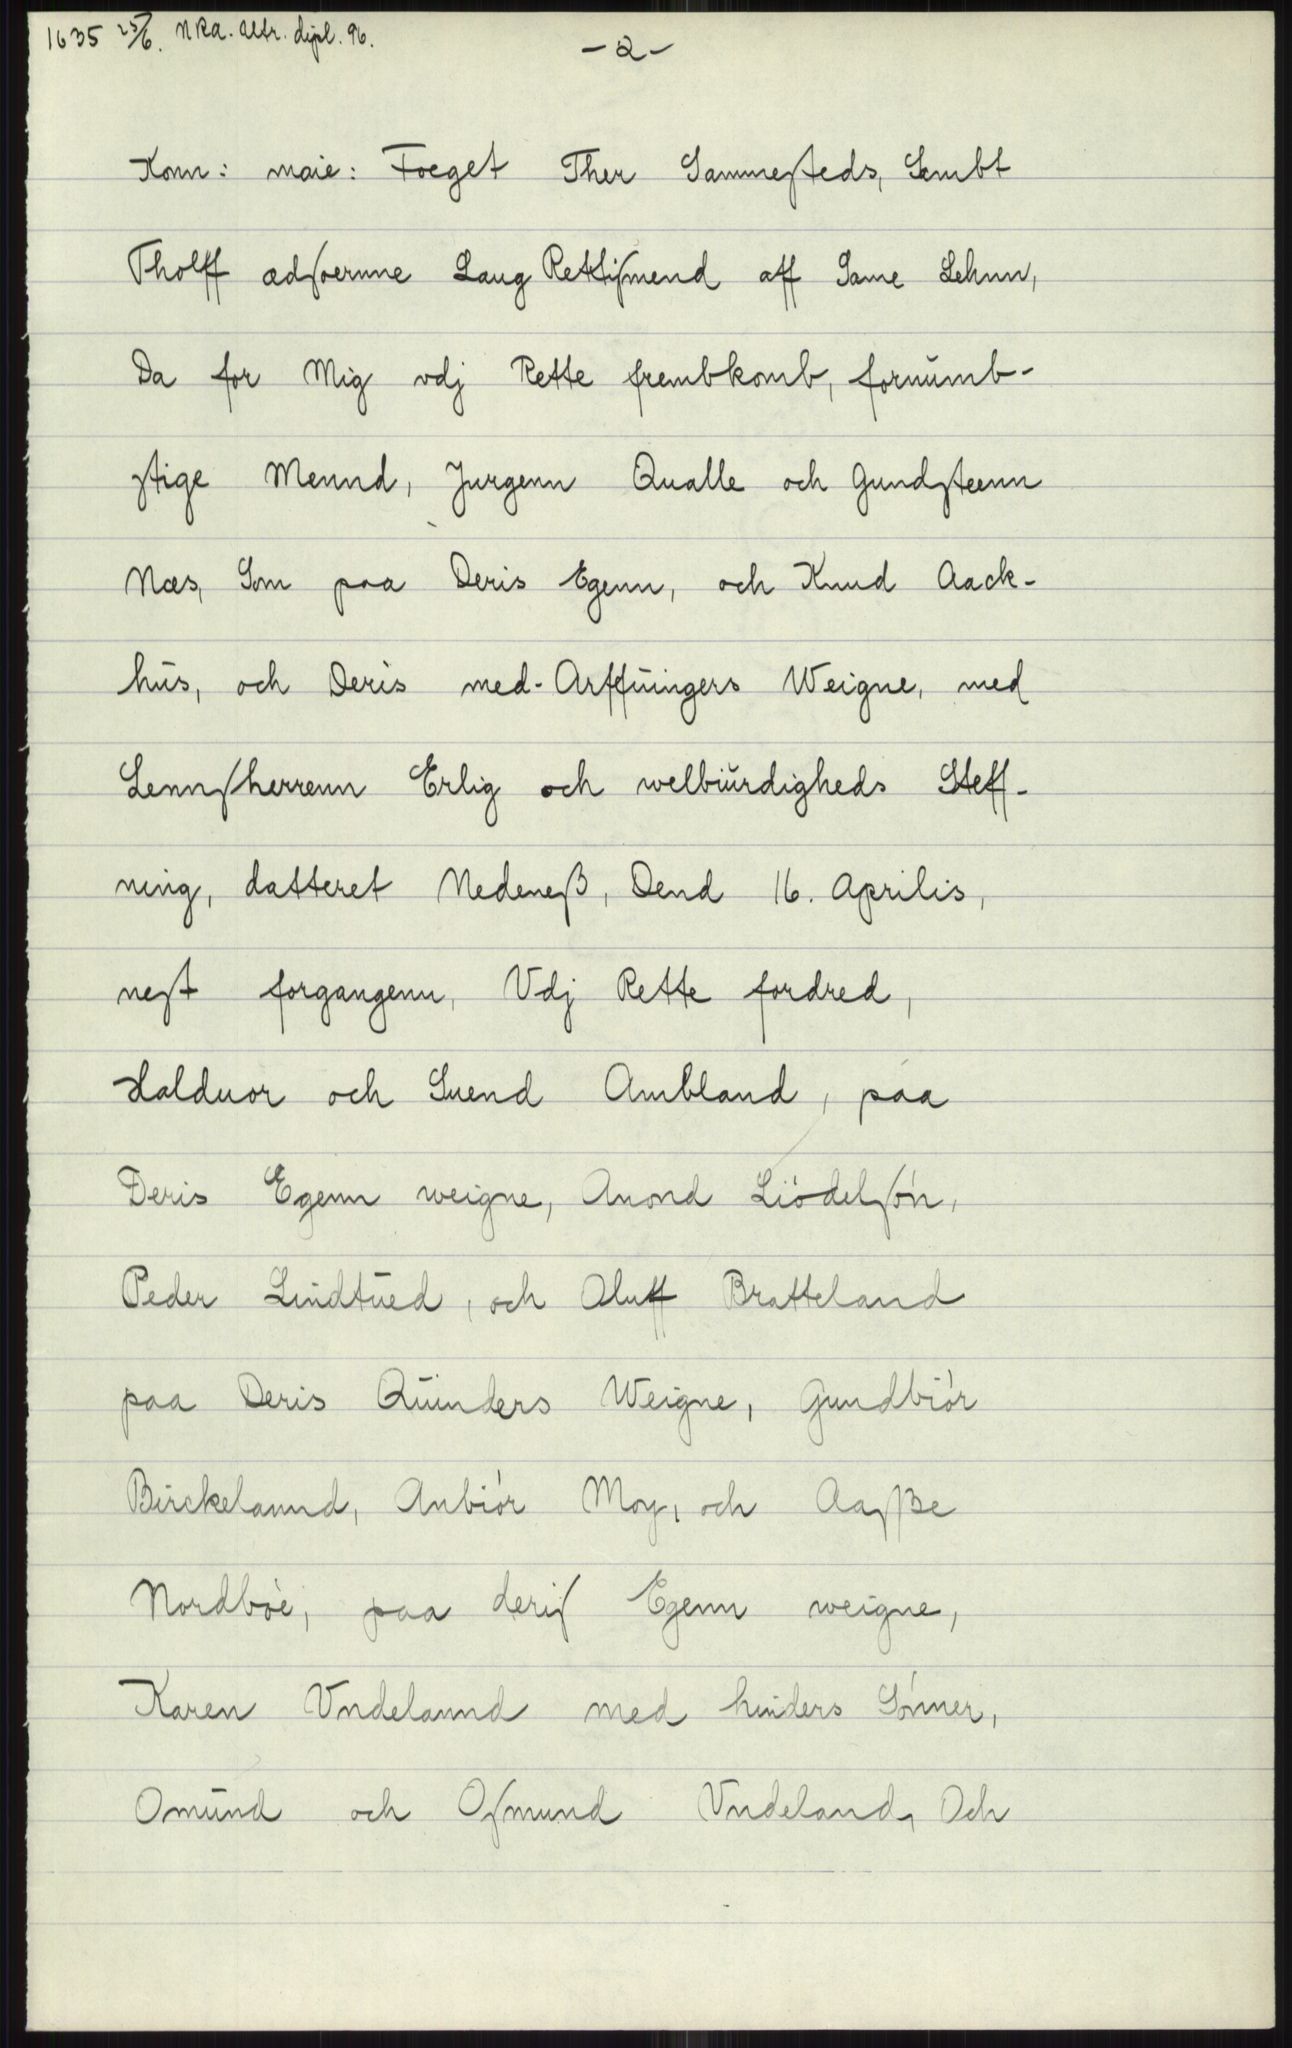 1635 25/6. NRA. Utr. dipl. 96.
- 2 -
Konn: maie: Foeget Ther Sammesteds, Sembt
Tholff ædsoernne Laug Rettismend aff Same Lehnn,
Da for Mig vdj Rette frembkomb, fornŭmb-
stige Mennd, Jurgenn Qualle och Gundsteenn
Næs, Som paa Deris Egenn, och Knud Aack-
hŭs, och Deris med-Arffŭingers Weigne, med
Lennsherrenn Erlig och welbiŭrdigheds Steff-
ning, datteret Nedeneß, Dend 16. Aprilis,
nest forgangenn, Vdj Rette fordred,
Halduor och Suend Ambland, paa
Deris Egenn weigne, Anond Liódelsón,
Peder Lindtŭed, och Oluff Bratteland
paa Deris Qŭinders Weigne, Gundbiór
Birckelannd, Anbiór Moy, och Aasße
Nordbóe, paa deris Egenn weigne,
Karen Vndelannd med hinders Sónner,
Omŭnd och Osmund Vndeland, Och